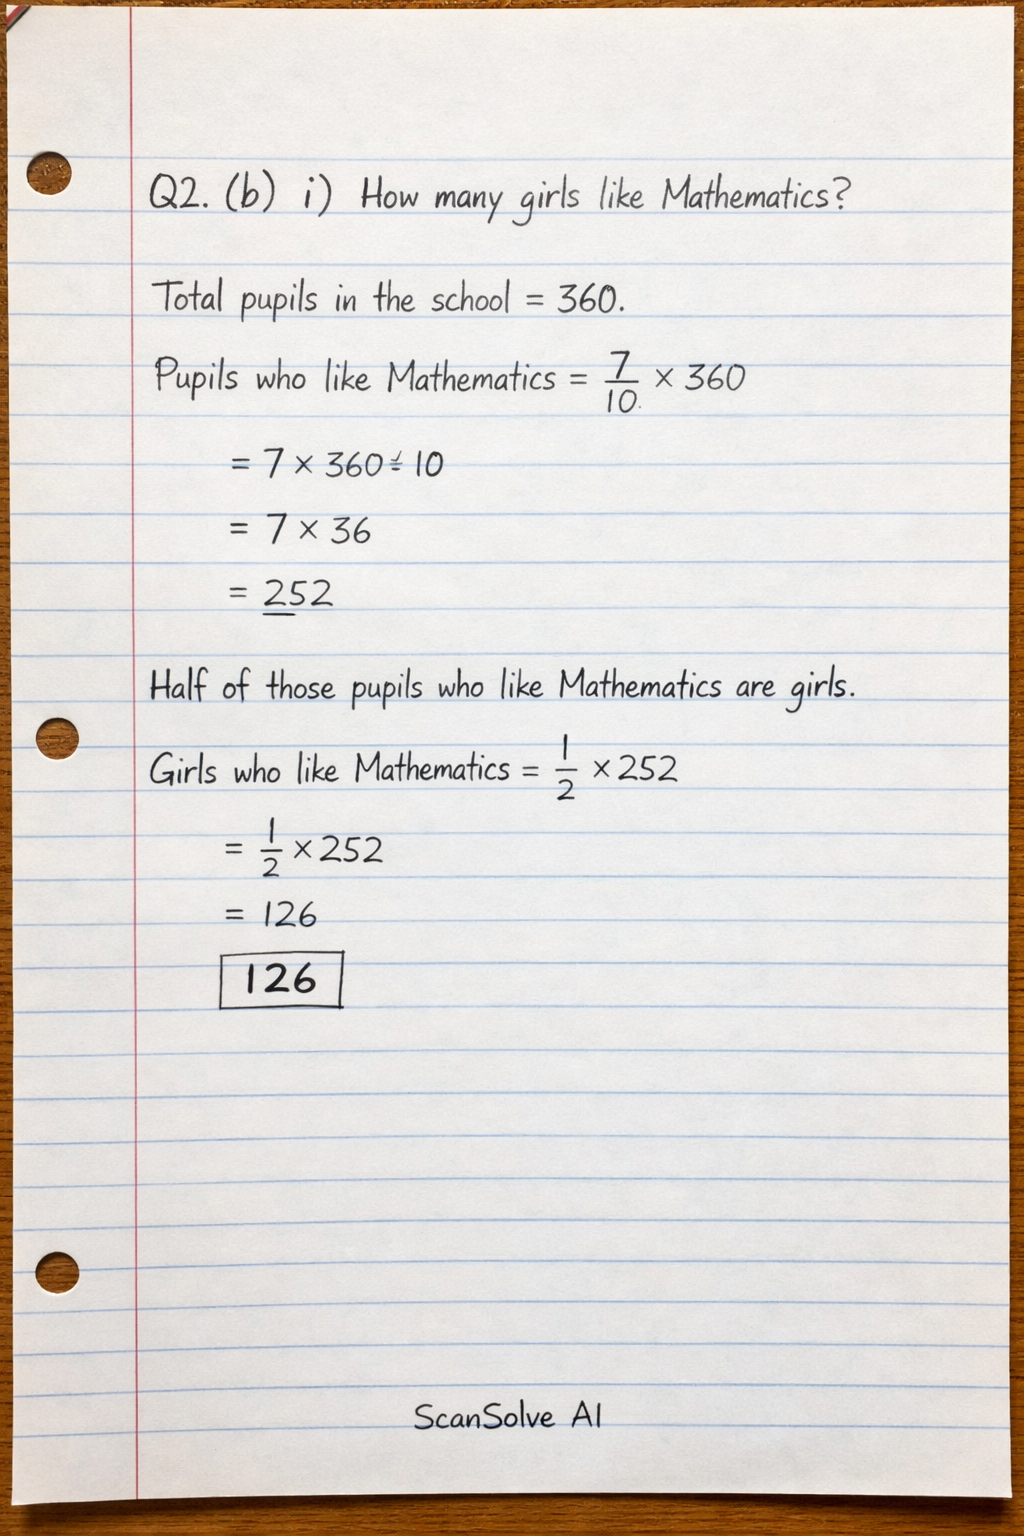 Q2. (b) i) How many girls like Mathematics?
Total pupils in the school = 360.
Pupils who like Mathematics = 7/10 × 360
= 7 × 360 ÷ 10
= 7 × 36
= 252
Half of those pupils who like Mathematics are girls.
Girls who like Mathematics = 1/2 × 252
= 1/2 × 252
= 126
126
ScanSolve AI